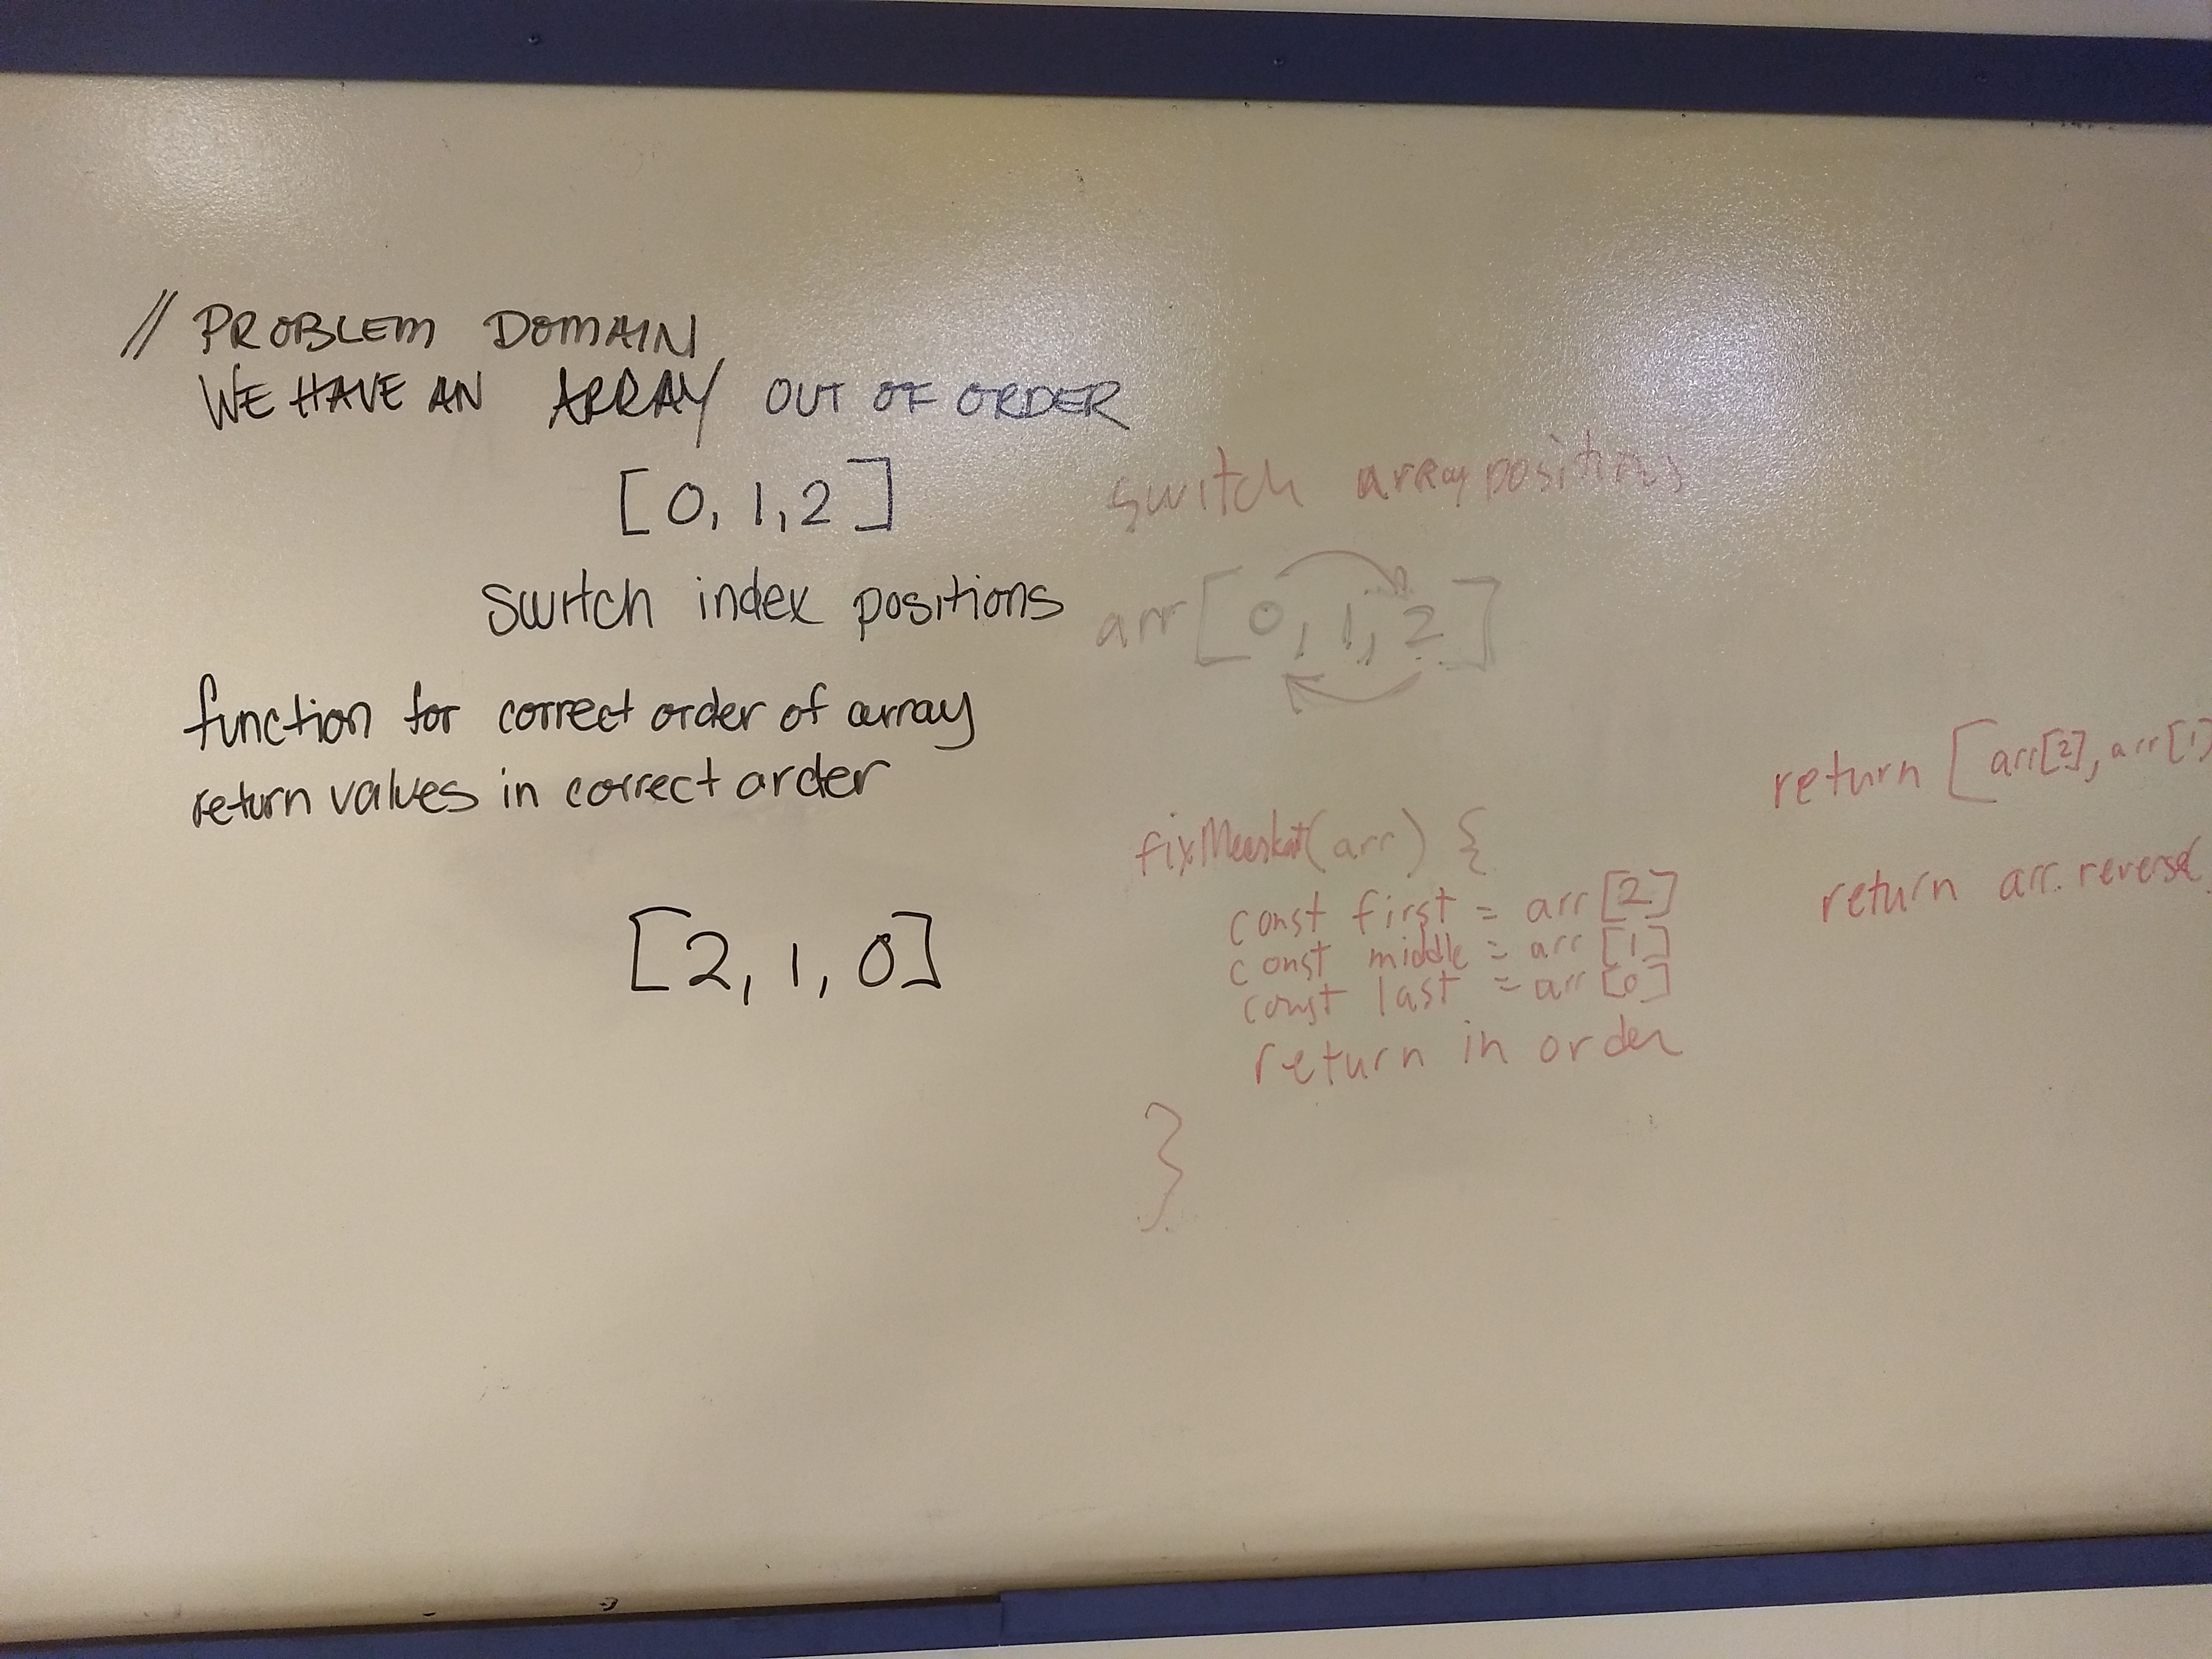 // PROBLEM DOMAIN
WE HAVE AN ARRAY OUT OF ORDER
[0, 1, 2]
switch index positions
function for correct order of array
return values in correct order
[2, 1, 0]
switch array positions
arr [0, 1, 2]
fixMeerkat(arr) {
const first = arr [2]
const middle = arr [1]
const last = arr [0]
return in order
}
return [arr[2], arr[1]
return arr.reverse(